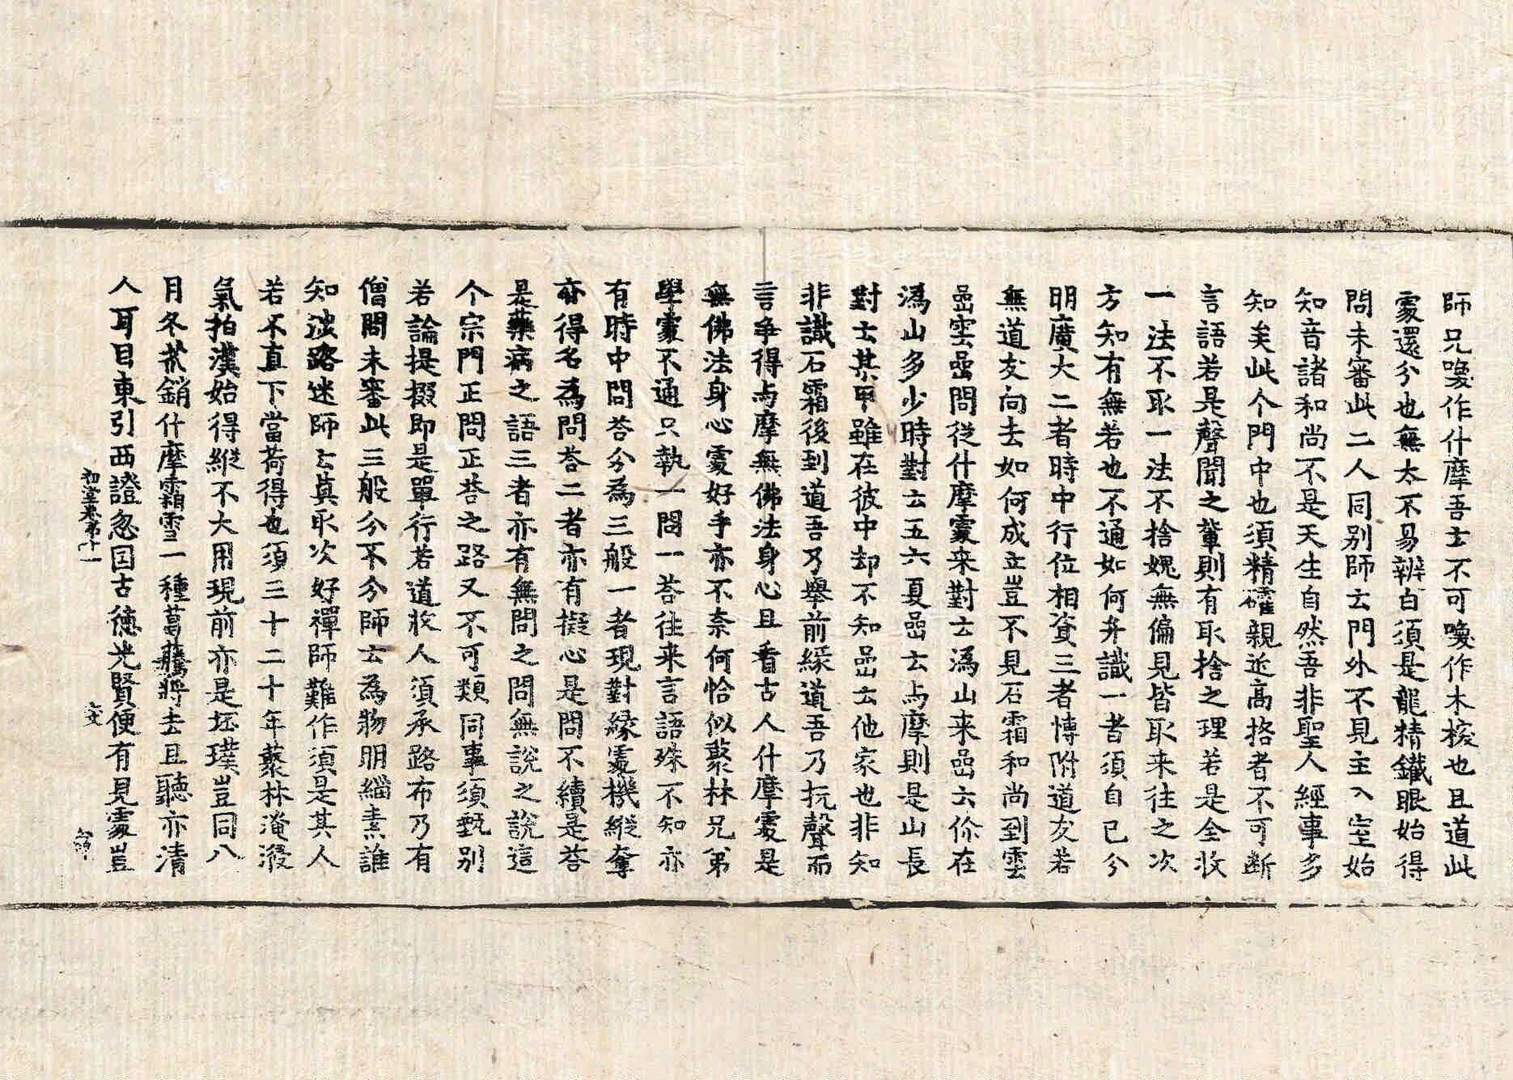 師兄喚作什摩吾云不可喚作木橛也且道此
處還分也無太不易辨白須是龍精鐵眼始得
問未審此二人同別師云門外不見主入室始
知音諸和尚不是天生自然吾非聖人經事多
知矣此个門中也須精確親近高格者不可斷
言語若是聲聞之輩則有取捨之理若是全收
一法不取一法不捨媿無偏見皆取来往之次
方知有無若也不通如何弁識一者須自已分
明廣大二者時中行位相資三者博附道友若
無道友向去如何成立豈不見石霜和尚到雲
嵒雲嵒問從什摩處来對云溈山来嵒云你在
溈山多少時對云五六夏嵒云与摩則是山長
對云某甲雖在彼中却不知嵒云他家也非知
非識石霜後到道吾乃舉前緣道吾乃抗聲而
言爭得与摩無佛法身心且看古人什摩處是
無佛法身心處好手亦不奈何恰似藂林兄弟
學處不通只執一問一荅往来言語殊不知亦
有時中問荅分為三般一者現對緣處機縱奪
亦得名為問荅二者亦有擬心是問不續是荅
是藥病之語三者亦有無問之問無說之說這
个宗門正問正荅之路又不可類同事須甄別
若論提掇即是單行若道收人須承路布乃有
僧問未審此三般分不分師云為物明緇素誰
知淡路迷師云真取次好禪師難作須是其人
若不直下當荷得也須三十二十年藂林淹㵱
氣拍漢始得縱不大用現前亦是坯璞豈同八
月冬苽銷什摩霜雪一種葛藤將去且聽亦清
人耳目東引西證忽因古德光賢便有見處豈
初堂卷第十一
六丈